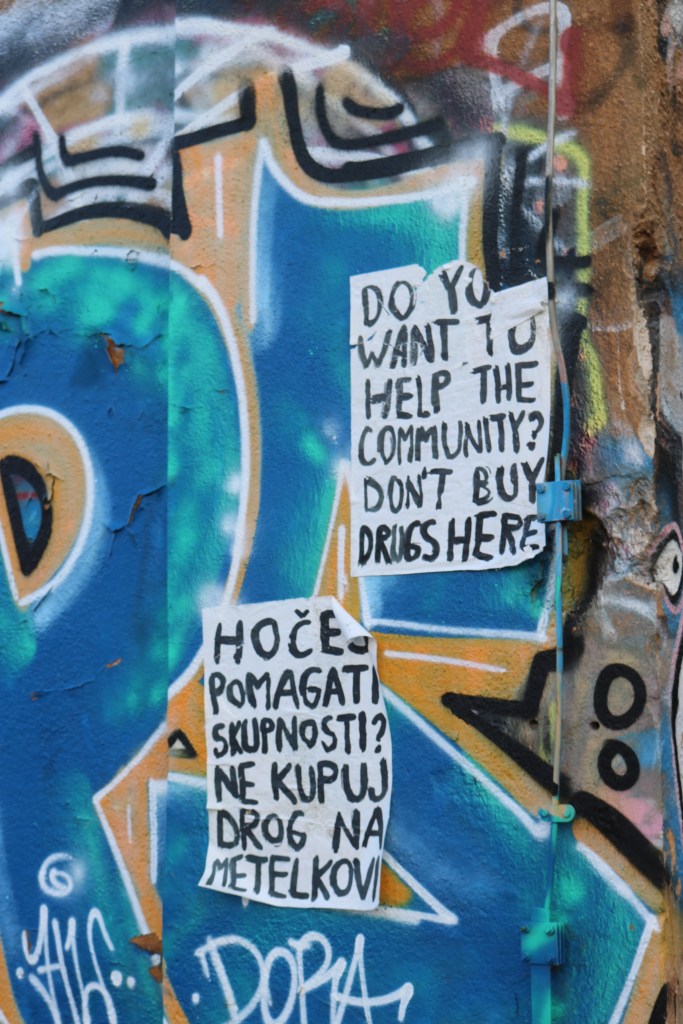 DO YOU
WANT TO
HELP THE
COMMUNITY?
DON'T BUY
DRUGS HERE
HOČEŠ
POMAGATI
SKUPNOSTI?
NE KUPUJ
DROG NA
METELKOVI
DORA